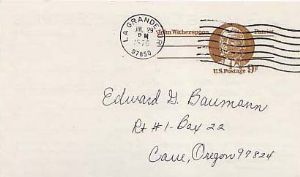 LA GRANDE, OR
JUL 29
PM
1976
97850
John Witherspoon Patriot
U.S. Postage 9¢
Edward G. Baumann
Rt #1-Box 22
Cove, Oregon 97824